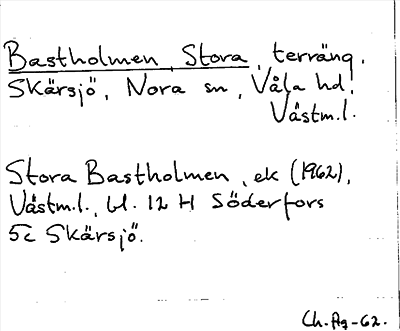 Bastholmen, Stora, terräng,
Skärsjö, Nora sn, Våla hd,
Västm.l.
Stora Bastholmen, ek (1962),
Västm.l., bl. 12 H Söderfors
5c Skärsjö.
Ch. Ag -62.